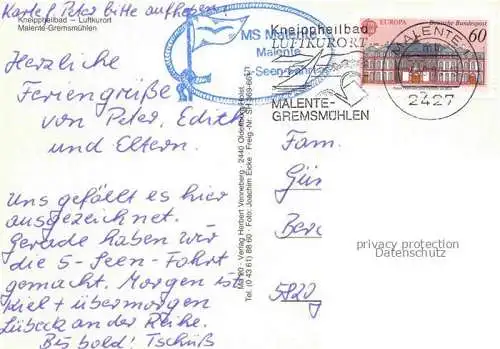 Karte f. Peter bitte aufheben!
Kneippheilbad – Luftkurort
Malente-Gremsmühlen
Herzliche
Feriengrüße
von Peter, Edith
und Eltern.
Uns gefällt es hier
ausgezeichnet.
Gerade haben wir
die 5-Seen-Fahrt
gemacht. Morgen ist
Kiel + übermorgen
Lübeck an der Reihe.
Bis bald! Tschüß
MS
Malente
5-Seen-Fahrt
Verlag Herbert Venneberg · 2440 Oldenburg/Holst.
Tel. (0 43 61) 88 60 · Foto: Joachim Eicke · Freig.-Nr. SH
Kneippheilbad
LUFTKURORT
MALENTE-
GREMSMÜHLEN
EUROPA Deutsche Bundespost
60
MALENTE
2427
Fam.
Gün
Berg
privacy protection
Datenschutz
5820